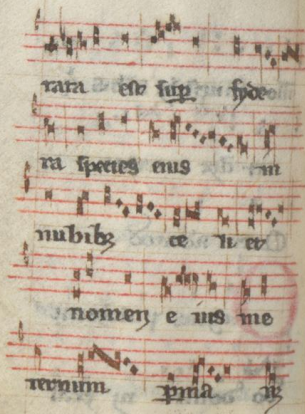 rata est sup syde
ra species eius in
nubibꝫ ce li et
nomen e ius me
ternum pma